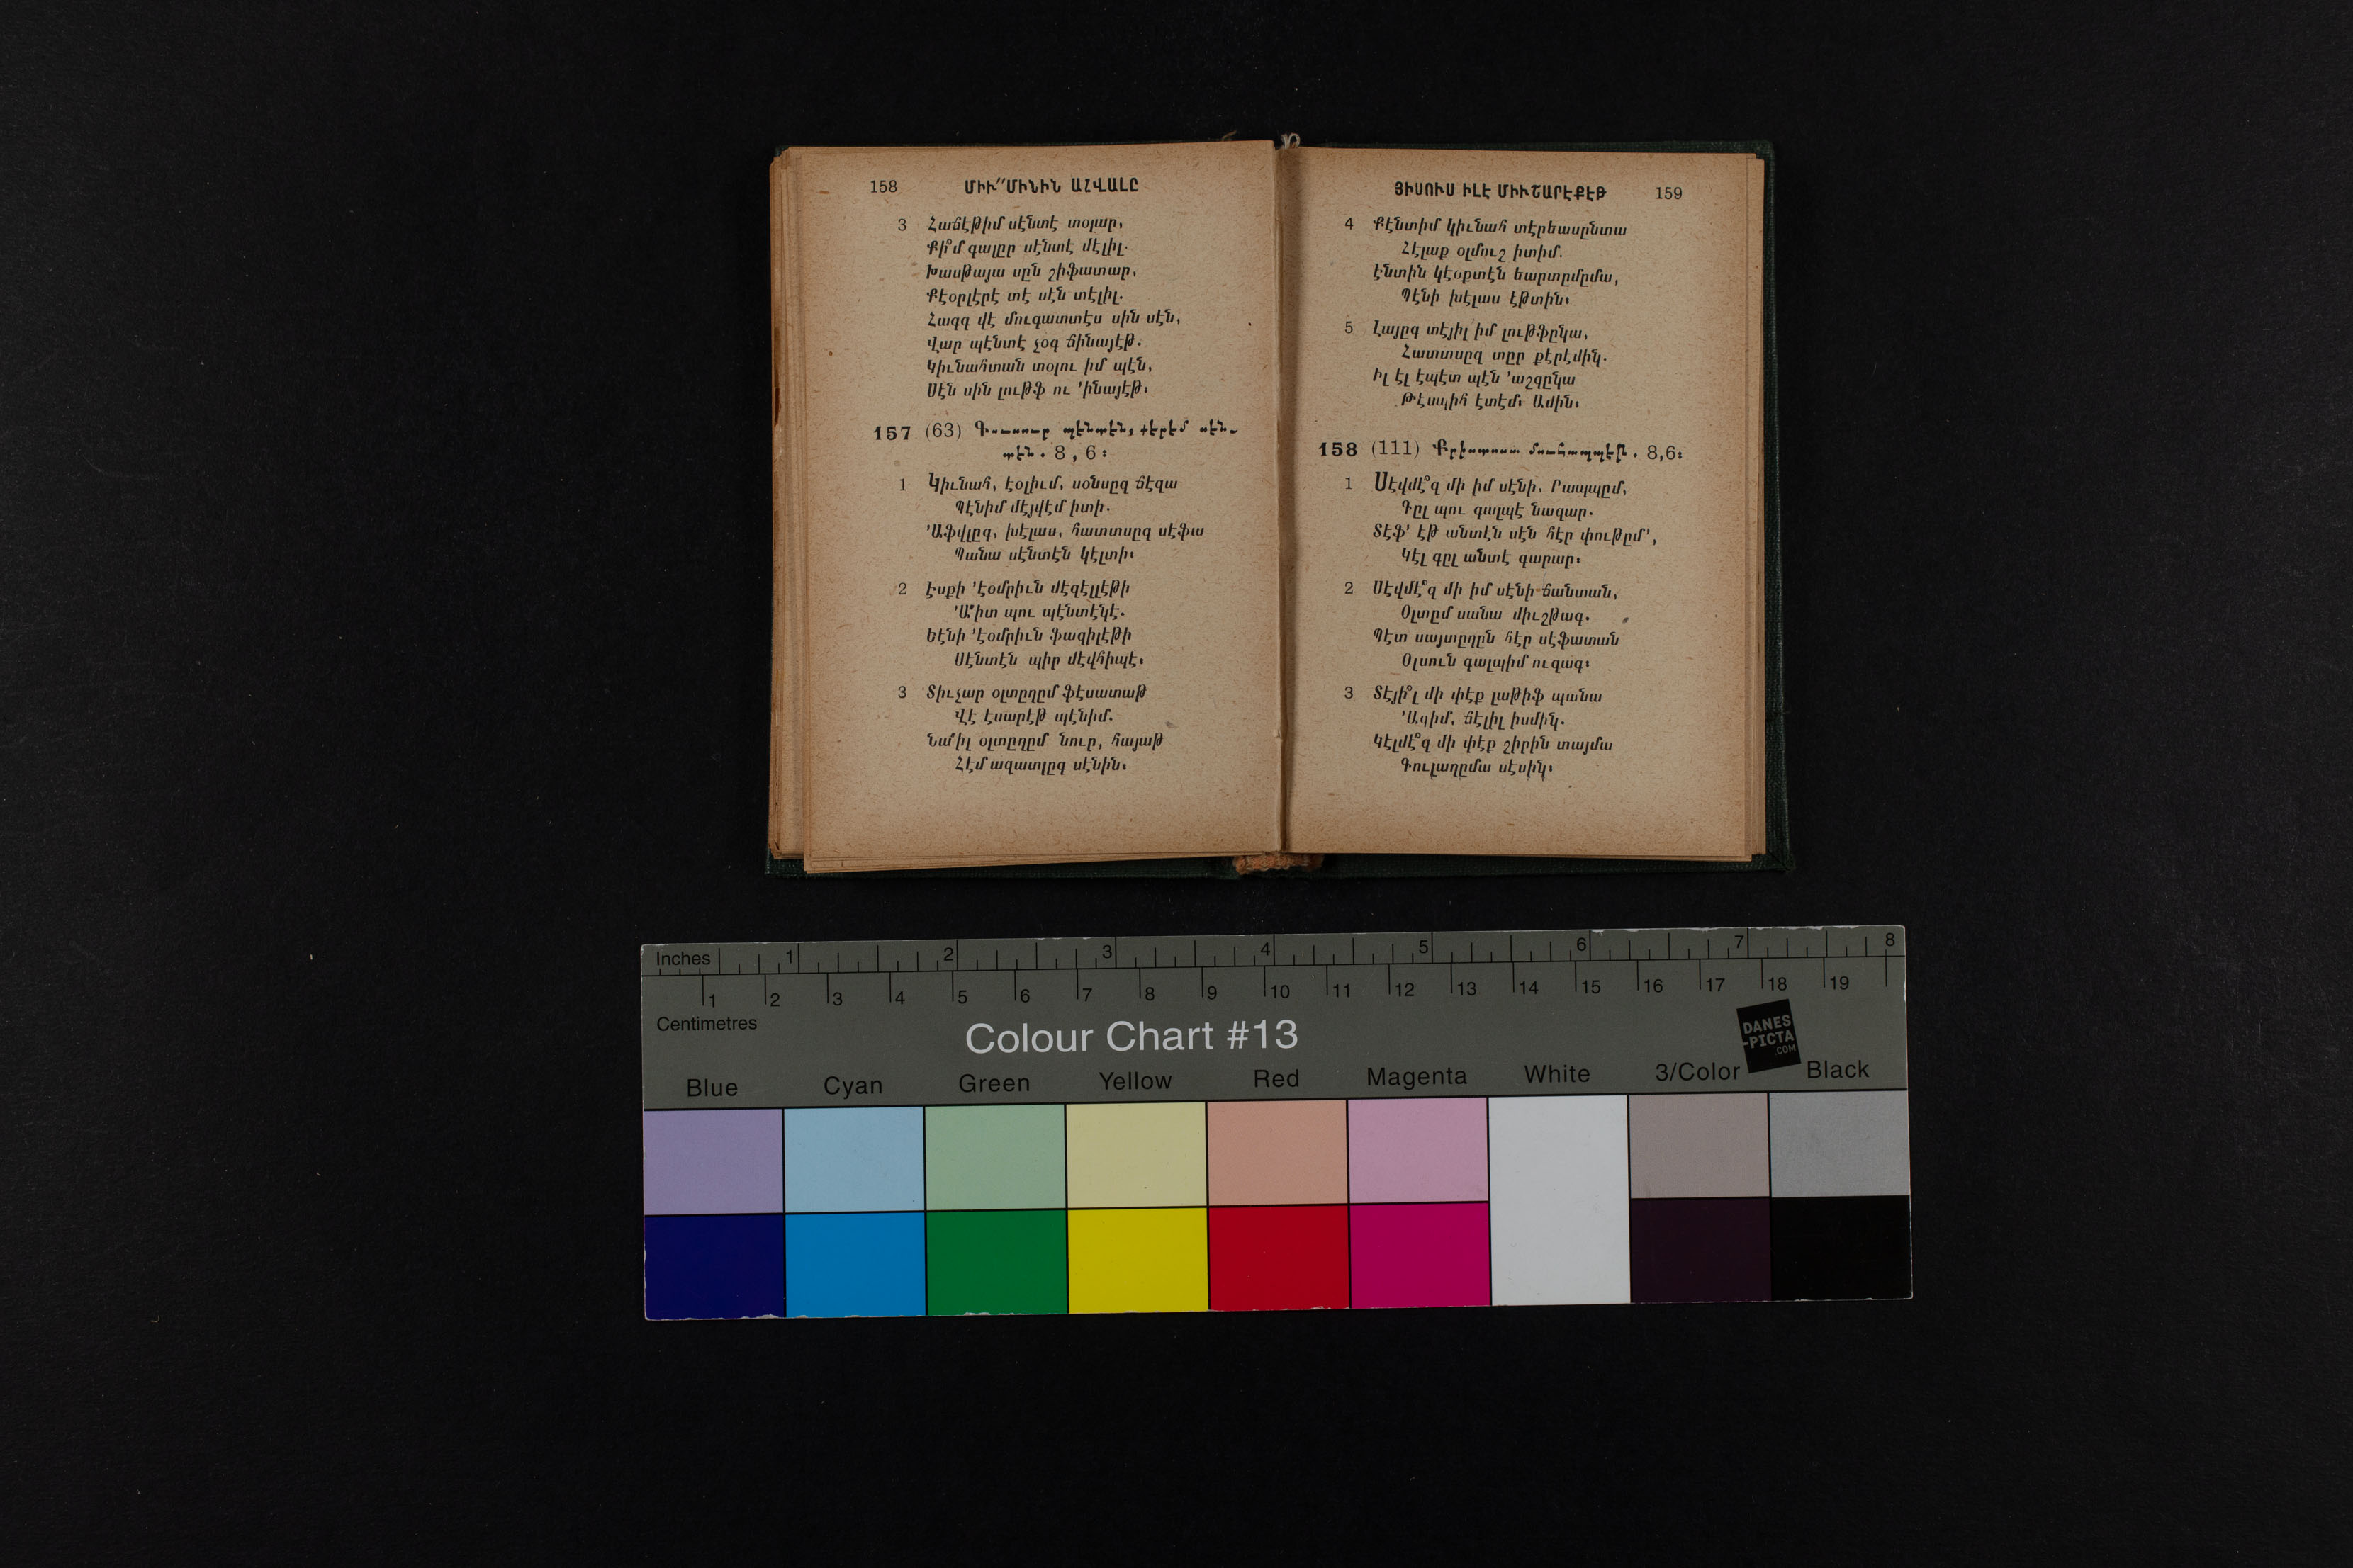 158 ՄԻՒ՚՚ՄԻՆԻՆ ԱՀՎԱԼԸ
3 Հաճէթիմ սէնտէ տօլար,
Քի՞մ գալըր սէնտէ մէլիլ.
Խասթայա սըն շիֆատար,
Քէօրլէրէ տէ սէն տէլիլ.
Հագգ վէ մուգատտէս սին սէն,
Վար պէնտէ չօգ ճինայէթ.
Կիւնահտան տօլու իմ պէն,
Սէն սին լութֆ ու ՚ինայէթ։
157 (63) Գուսուր պէնտէն, քէրէմ սէն-
տէն. 8, 6։
1 Կիւնահ, էօլիւմ, սօնսըզ ճէզա
Պէնիմ մէյվէմ իտի.
՚Աֆվլըգ, խէլաս, հատտսըզ սէֆա
Պանա սէնտէն կէլտի։
2 Էսքի ՚էօմրիւն մէզէլլէթի
՚Ա՚իտ պու պէնտէկէ.
Եէնի ՚էօմրիւն ֆազիլէթի
Սէնտէն պիր մէվհիպէ։
3 Տիւչար օլտըղըմ ֆէսատաթ
Վէ էսարէթ պէնիմ.
Նա՚իլ օլտըղըմ նուր, հայաթ
Հէմ ազատլըգ սէնին։
ՅԻՍՈՒՍ ԻԼԷ ՄԻՒՇԱՐԷՔԷԹ 159
4 Քէնտիմ կիւնահ տէրեասընտա
Հէլաք օլմուշ իտիմ.
Էնտին կէօքտէն եարտըմըմա,
Պէնի խէլաս էթտին։
5 Լայըգ տէյիլ իմ լութֆընա,
Հատտսըզ տըր քէրէմին.
Իլ էլ էպէտ պէն ՚աշգընա
Թէսպիհ էտէմ։ Ամին։
158 (111) Քրիստոսա մուհապպէթ. 8,6։
1 Սէվմէ՞զ մի իմ սէնի, Րապպըմ,
Գըլ պու գալպէ նազար.
Տէֆ՚ էթ անտէն սէն հէր փութըմ՚,
Կէլ գըլ անտէ գարար։
2 Սէվմէ՞զ մի իմ սէնի ճանտան,
Օլտըմ սանա միւշթագ.
Պէտ սայտըղըն հէր սէֆատան
Օլսուն գալպիմ ուզագ։
3 Տէյի՞լ մի փէք լաթիֆ պանա
՚Ազիմ, ճէլիլ իսմին.
Կէլմէ՞զ մի փէք շիրին տայմա
Գուլաղըմա սէսին։
Inches 1 2 3 4 5 6 7 8
1 2 3 4 5 6 7 8 9 10 11 12 13 14 15 16 17 18 19
Centimetres
Colour Chart #13
DANES
-PICTA
.COM
Blue Cyan Green Yellow Red Magenta White 3/Color Black